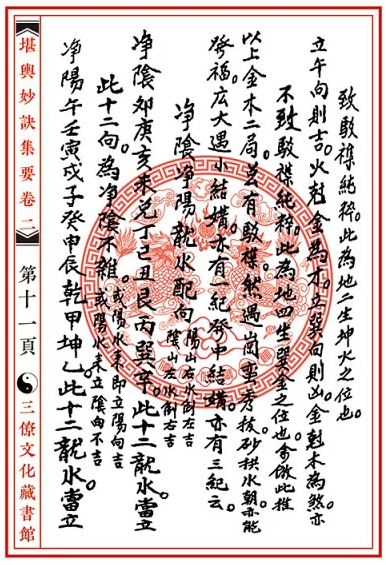 致駁襍純粹。此為地二生坤火之位也。
立午向則吉。火尅金為才。立巽向則凶。金尅木為煞。亦
不致駁襍純粹。此為地四生巽金之位也。余倣此推
以上金木二局。莫有駁襍。然遇巒頭秀拔。砂拱水朝。亦能
發福。広大遇小結構。亦有一紀發。中結構。亦有三紀云。
淨陰淨陽龍水配向
陽山右水倒左吉
陰山左水倒右吉
淨陰卯庚亥未兌丁巳丑艮丙巽辛。此十二龍水。當立
此十二向。為淨陰不雜。
或陽水來即立陽向吉
或陽水來立陰向不吉
淨陽午壬寅戌子癸申辰乾甲坤乙。此十二龍水。當立
堪輿妙訣集要卷二
第十一頁
三僚文化藏書館